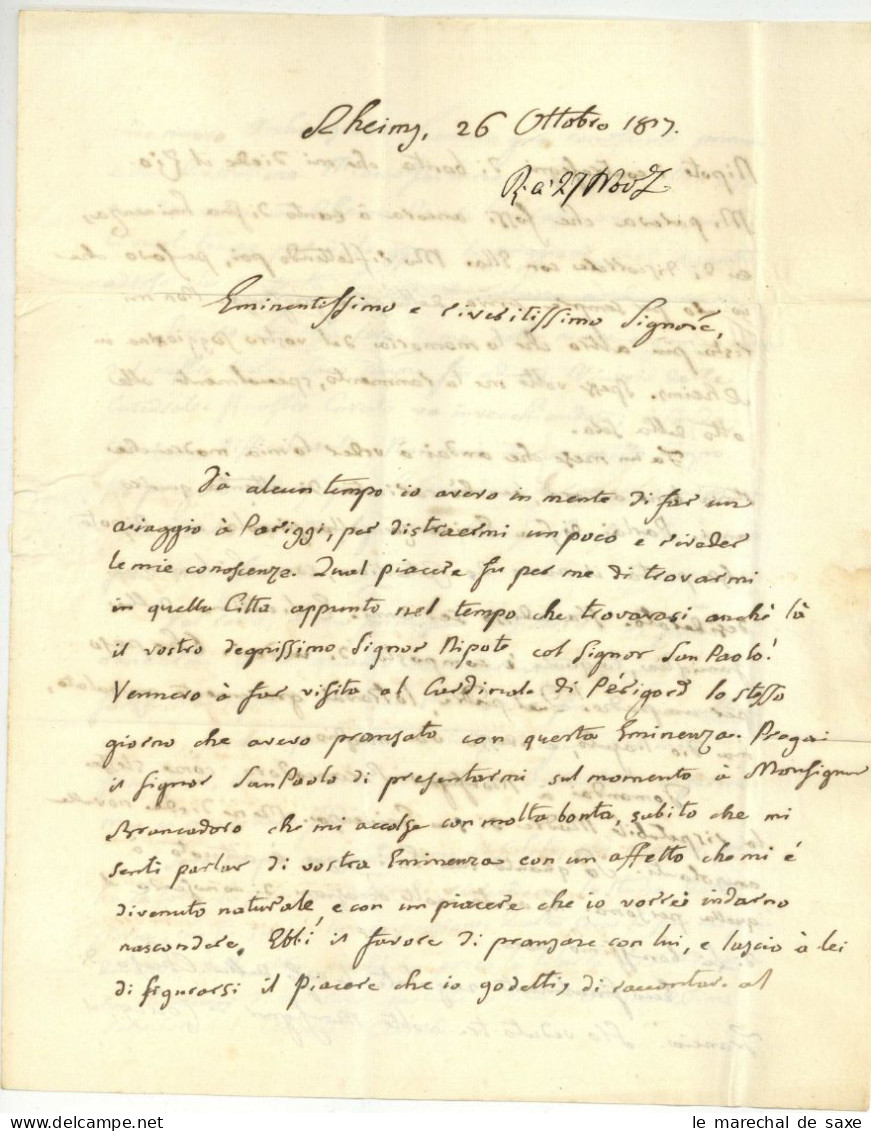 Rheims, 26 Ottobro 1817.
R. a' 27 Nov
Eminentissimo e riveritissimo Signore,
Dà alcun tempo io avevo in mente di far un
viaggio à Pariggi, per distraermi un poco e riveder
le mie conoscenze. Qual piacere fu per me di trovarmi
in quella Citta appunto nel tempo che trovavasi anchè là
il vostro degnissimo Signor Nipote col Signor San Paolo!
Vennero à far visita al Cardinale di Périgord lo stesso
giorno che avevo pransato con questa Eminenza. Pregai
il Signor San Paolo di presentarmi sul momento à Monsignor
Brancadoro che mi accolse con molta bonta, subito che mi
senti parlar di vostra Eminenza con un affetto che mi é
divenuto naturale, e con un piacere che io vorrei indarno
nascondere. Ebbi il favore di pranzare con lui, e lascio à lei
di figurarsi il Piacere che io godetti, di raccontare al
le marechal de saxe